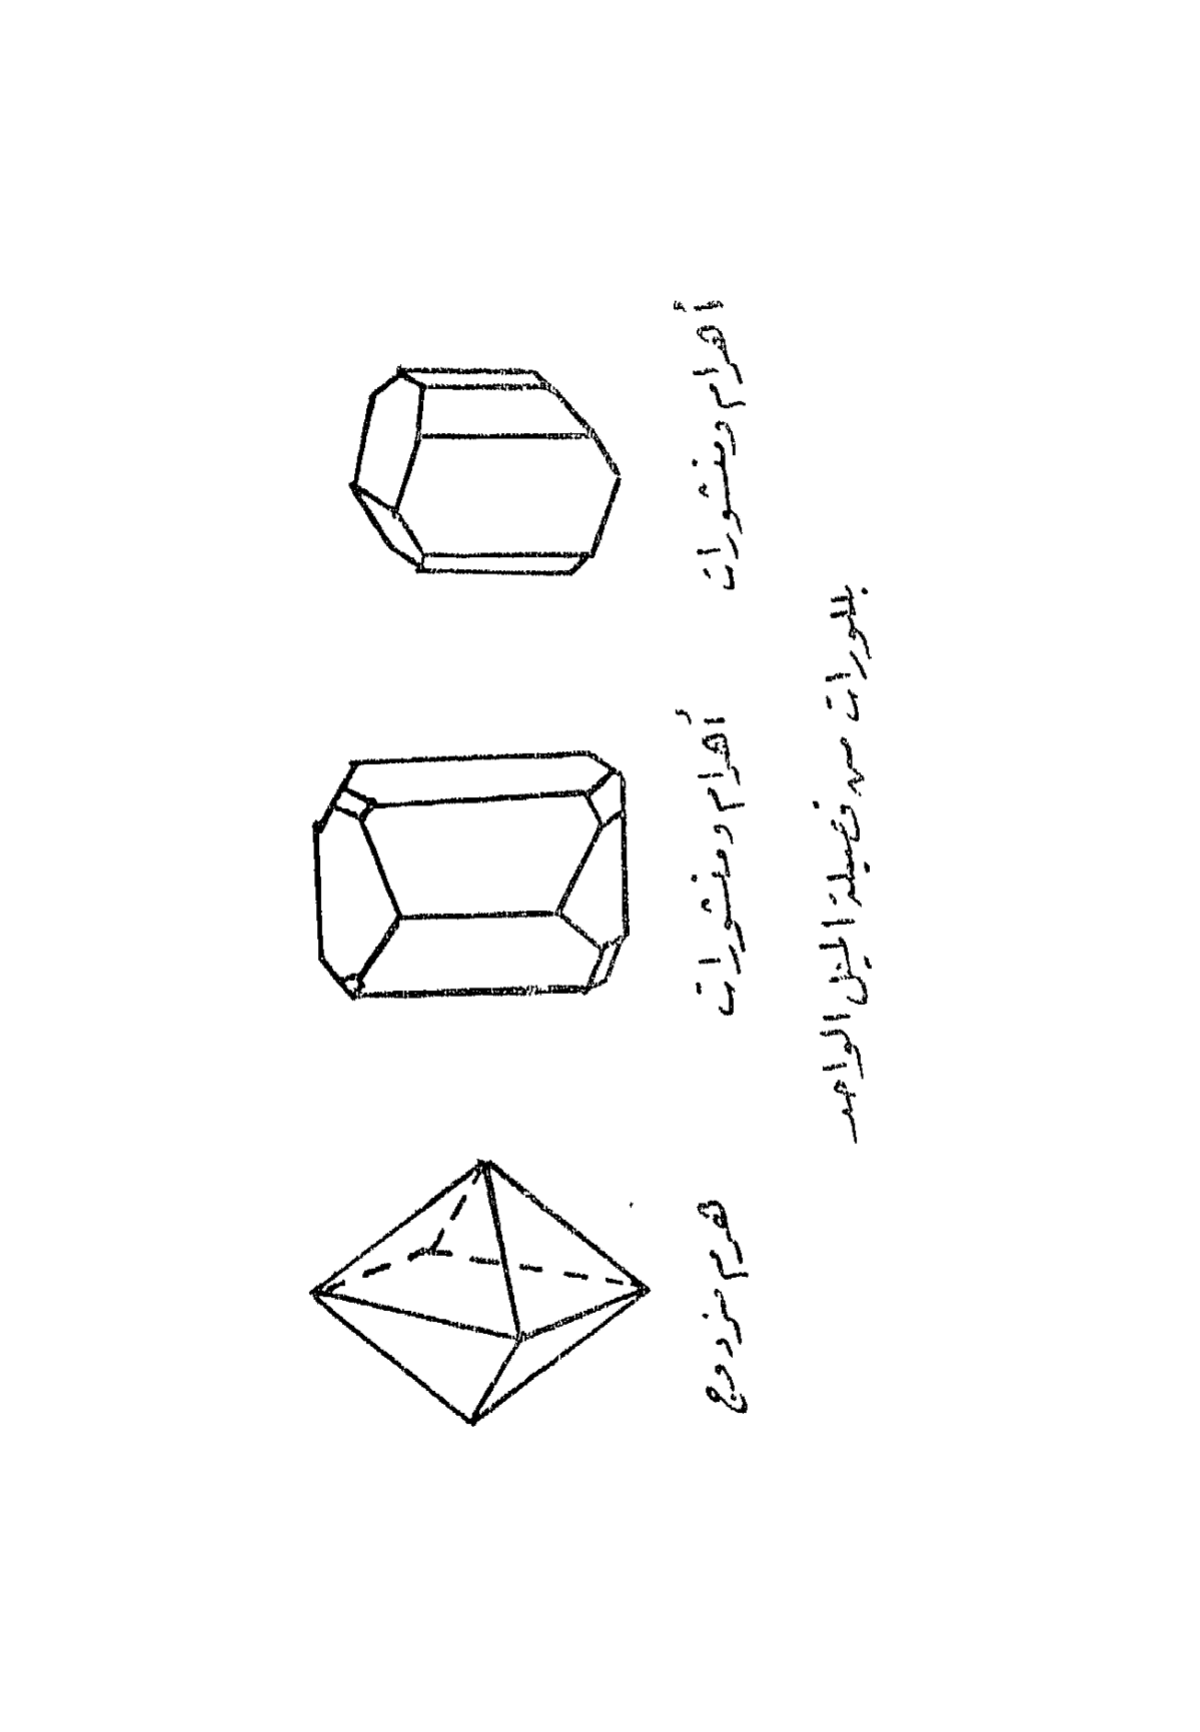 أهرام ومنشورات
أهرام ومنشورات
هرم مزدوج
بللورات من فصيلة الميل الواحد